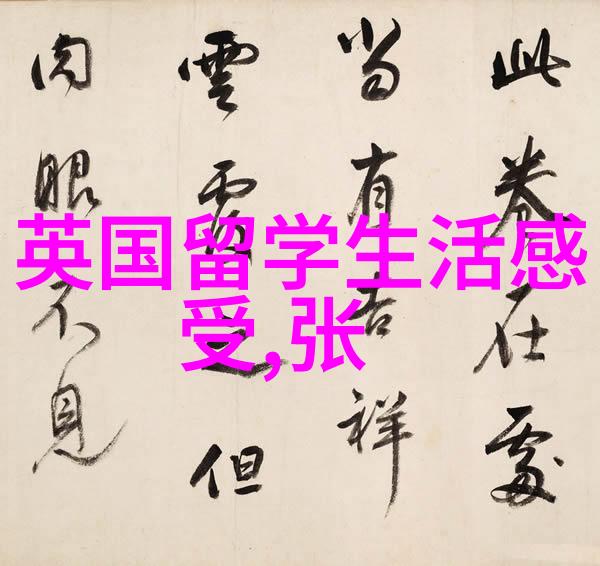 此卷在處
當有吉祥
雲覆之但
肉眼不見
英国留学生活感
受,张